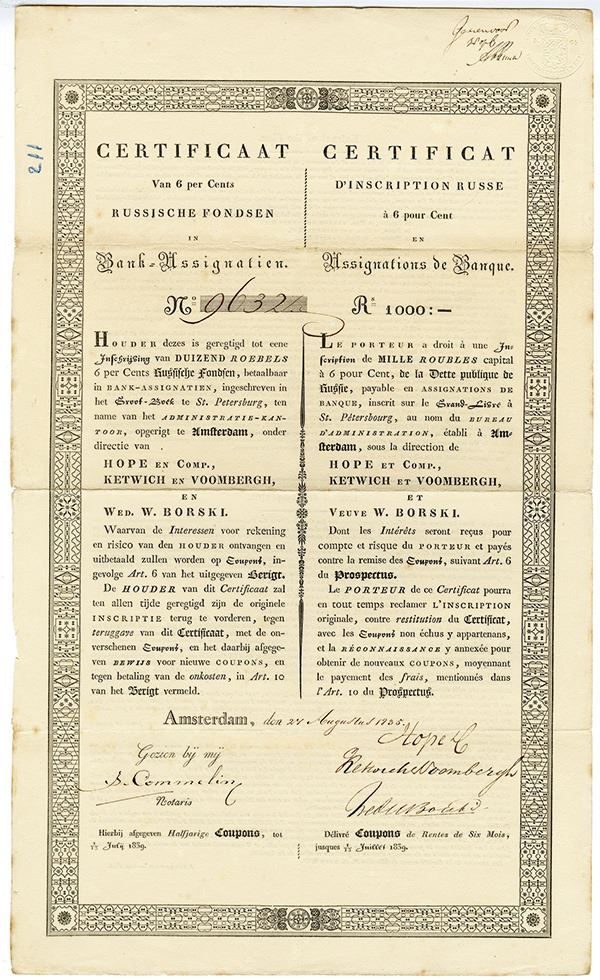 211
CERTIFICAAT
Van 6 per Cents
RUSSISCHE FONDSEN
IN
Bank-Assignatien.
No 9632
HOUDER dezes is geregtigd tot eene
Inschrijving van DUIZEND ROEBELS
6 per Cents Russische Fondsen, betaalbaar
in BANK-ASSIGNATIEN, ingeschreven in
het Groot-Boek te St. Petersburg, ten
name van het ADMINISTRATIE-KAN-
TOOR, opgerigt te Amsterdam, onder
directie van .
HOPE EN COMP.,
KETWICH EN VOOMBERGH,
EN
WED. W. BORSKI.
Waarvan de Interessen voor rekening
en risico van den HOUDER ontvangen en
uitbetaald zullen worden op Coupons, in-
gevolge Art. 6 van het uitgegeven Berigt.
De HOUDER van dit Certificaat zal
ten allen tijde geregtigd zijn de originele
INSCRIPTIE terug te vorderen, tegen
teruggave van dit Certificaat, met de on-
verschenen Coupons, en het daarbij afgege-
ven BEWIJS voor nieuwe COUPONS, en
tegen betaling van de onkosten, in Art. 10
van het Berigt vermeld.
CERTIFICAT
D'INSCRIPTION RUSSE
à 6 pour Cent
EN
Assignations de Banque.
Rs 1000:—
LE PORTEUR a droit à une In-
scription de MILLE ROUBLES capital
à 6 pour Cent, de la Dette publique de
Russie, payable en ASSIGNATIONS DE
BANQUE, inscrit sur le Grand-Livre à
St. Pétersbourg, au nom du BUREAU
D'ADMINISTRATION, établi à Am-
sterdam, sous la direction de
HOPE ET COMP.,
KETWICH ET VOOMBERGH,
ET
VEUVE W. BORSKI.
Dont les Intérêts seront reçus pour
compte et risque du PORTEUR et payés
contre la remise des Coupons, suivant Art. 6
du Prospectus.
Le PORTEUR de ce Certificat pourra
en tout temps reclamer L'INSCRIPTION
originale, contre restitution du Certificat,
avec les Coupons non échus y appartenans,
et la RÉCONNAISSANCE y annexée pour
obtenir de nouveaux COUPONS, moyennant
le payement des frais, mentionnés dans
l'Art. 10 du Prospectus.
Amsterdam, den 24 Augustus 1835.
Gezien bij mij
Commelin
Notaris
Hope
Ketwich Voombergh
Wed W Borski
Hierbij afgegeven Halfjarige Coupons, tot
1/13 Julij 1839.
Délivré Coupons de Rentes de Six Mois,
jusques 1/13 Juillet 1839.